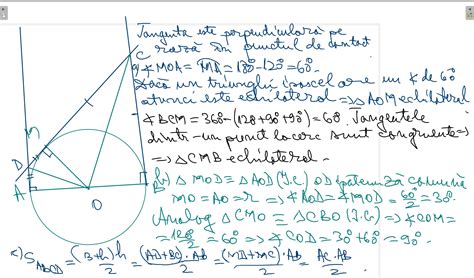 Tangenta este perpendiculară pe
rază în punctul de contact
C
a) ∢MOA = MA = 180°-120° = 60°
Dacă un triunghi isoscel are un ∢ de 60°
atunci este echilateral ⇒ △AOM echilateral
∢BCM = 360° - (120+90+90) = 60°. Tangentele
dintr-un punct la cerc sunt congruente ⇒
⇒ △CMB echilateral.
M
D
A
O
B
b) △MOD ≡ △AOD (I.C) OD ipotenuză comună
MO = AO = r ⇒ ∢AOD = ∢MOD = 60°/2 = 30°
Analog △CMO ≡ △CBO (I.C) ⇒ ∢COM =
= 120°/2 = 60° ⇒ ∢COD = 30°+60° = 90°
c) S_ABCD = (B+b)h/2 = (AD+BC)·AB/2 = (MD+MC)·AB/2 = AC·AB/2